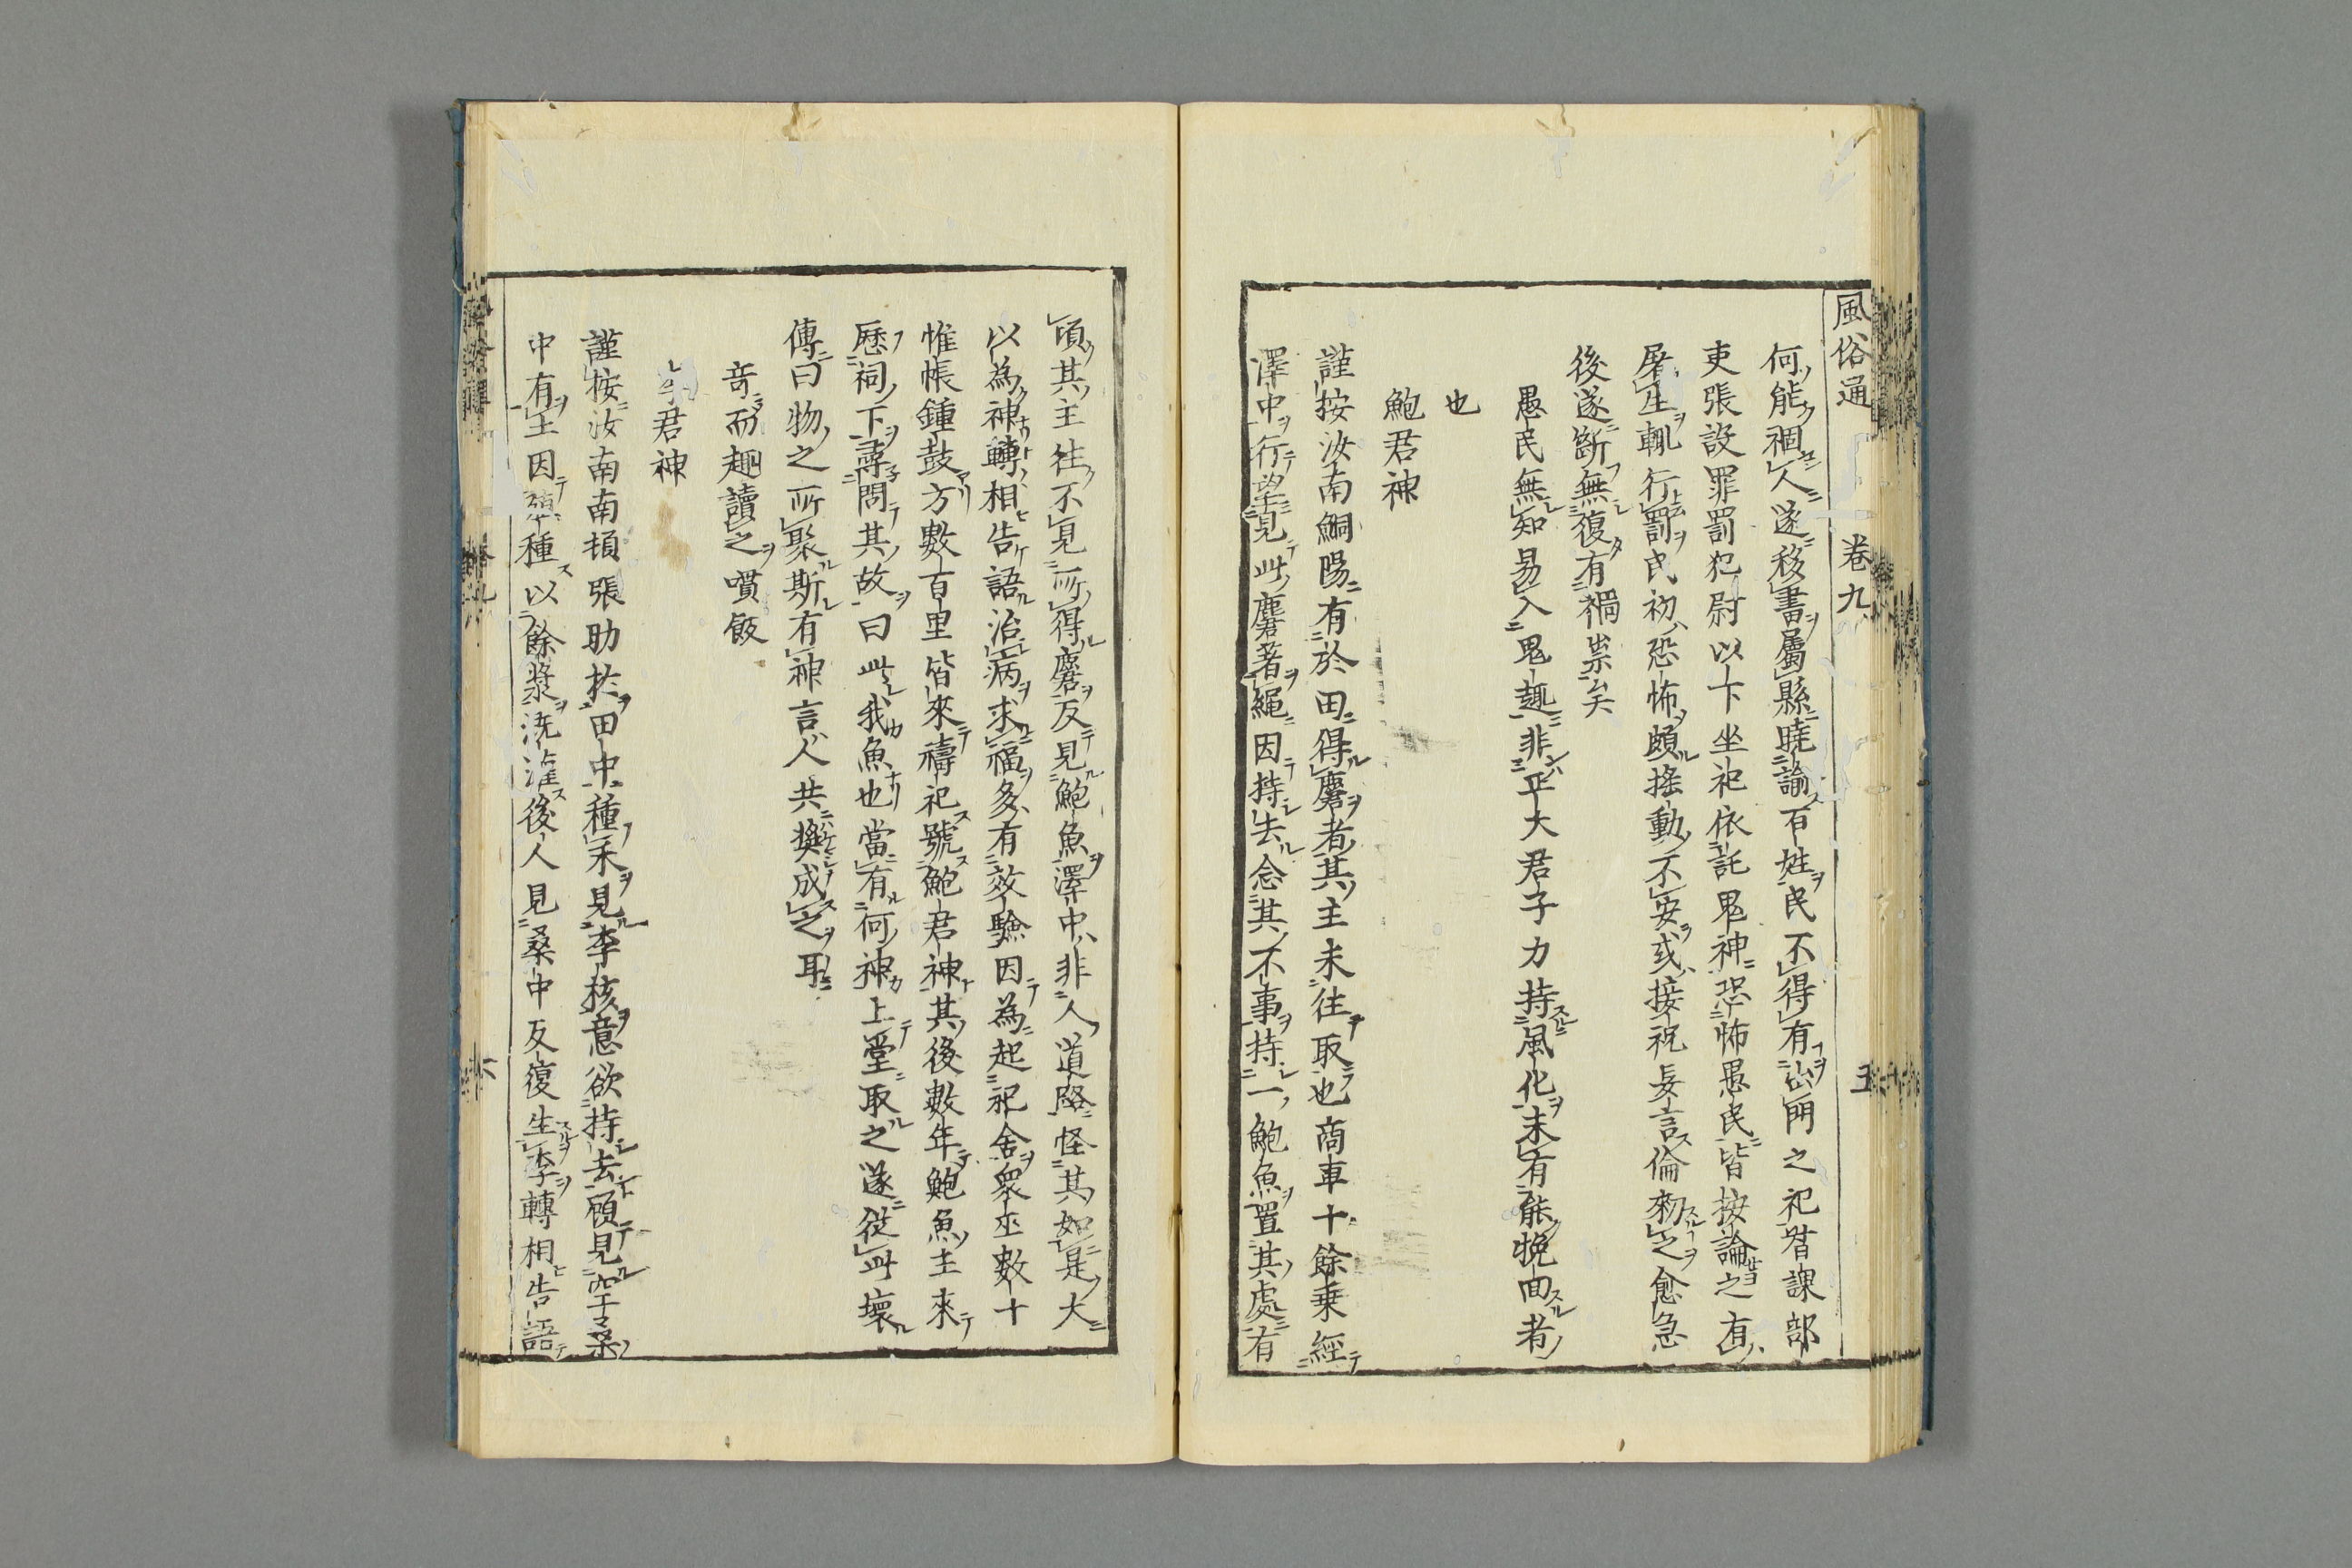 風俗通　卷九　五
何能禍人遂移書屬縣曉諭百姓民不得有出門之祀督課部
吏張設罪罰犯尉以下坐祀依託鬼神恐怖愚民皆按論之有
屠生輒行罰民初恐怖頗搖動不安或接祝妄言倫勑之愈急
後遂斷無復有禍祟矣
愚民無知易入鬼趣非平大君子力持風化未有能挽面者
也
鮑君神
謹按汝南鮦陽有於田得麏者其主未往取也商車十餘乗經
澤中行望見此麏著繩因持去念其不事持一鮑魚置其處有
頃其主往不見所得麏反見鮑魚澤中非人道路怪其如是大
以為神轉相告語治病求福多有效驗因為起祀舍衆巫數十
帷帳鍾鼓方數百里皆來禱祀號鮑君神其後數年鮑魚主來
歷祠下尋問其故曰此我魚也當有何神上堂取之遂從此壞
傳曰物之所聚斯有神言人共奬成之耳
奇而趣讀之噴飯
李君神
謹按汝南南頓張助於田中種禾見李核意欲持去顧見空桑
中有土因殖種以餘漿漑灌後人見桑中反復生李轉相告語